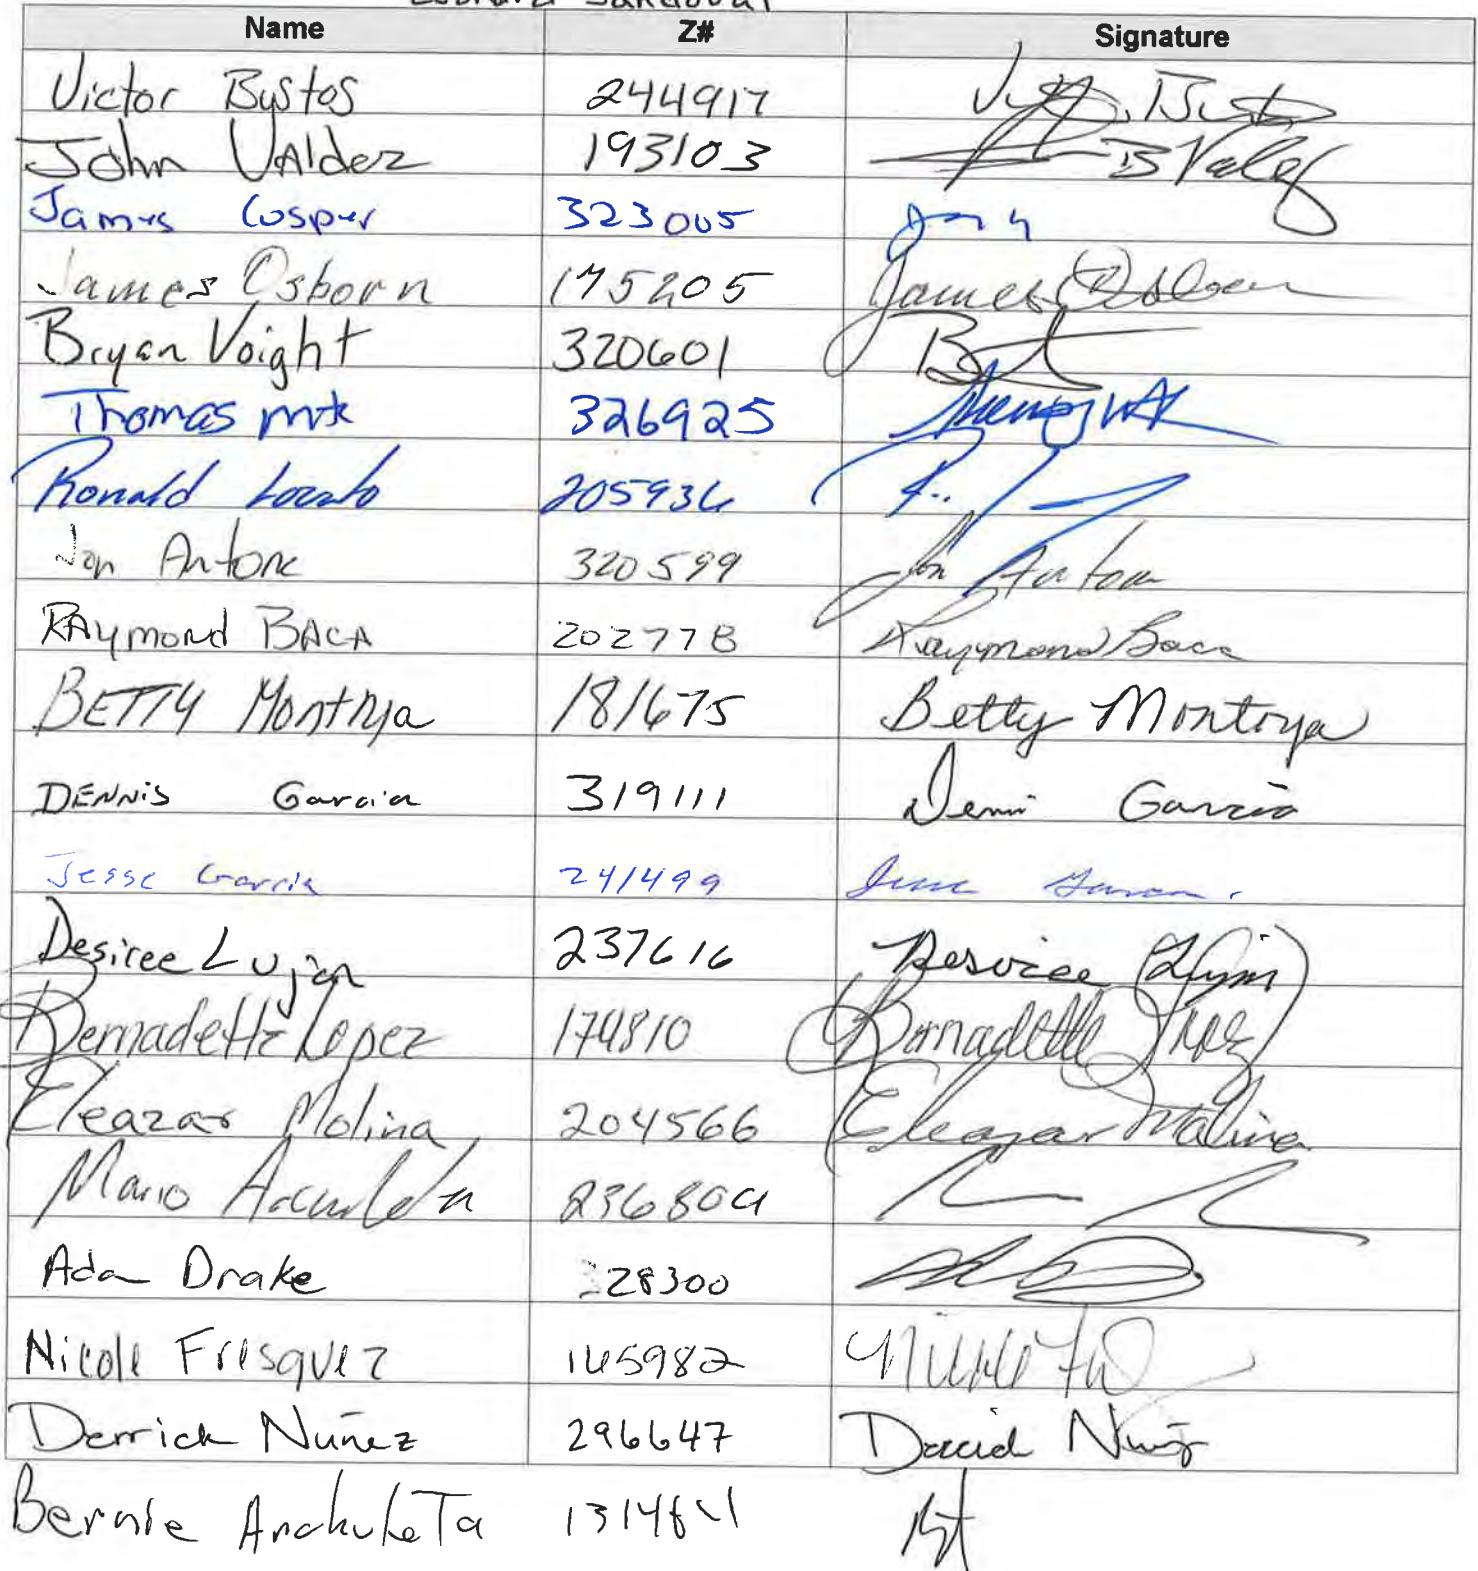 Leonard Sandoval
Name Z# Signature
Victor Bustos 244917
John VAldez 193103 B Valdez
James Cosper 323005
James Osborn 175205 James Osborn
Bryan Voight 320601
Thomas 326925
Ronald Lovato 205936
Jon Antone 320599 Jon Antone
RAymond BACA 202778 Raymond Baca
BETTY Montoya 181675 Betty Montoya
DENNIS Garcia 319111 Dennis Garcia
Jesse Garcia 241499 Jesse Garcia
Desiree Lujan 237616 Desiree Lujan
Bernadette Lopez 174810 Bernadette Lopez
Eleazar Molina 204566 Eleazar Molina
Mario Archuleta 236809
Ada Drake 328300
Nicole Fresquez 165982
Derrick Nuñez 296647
Bernie Archuleta